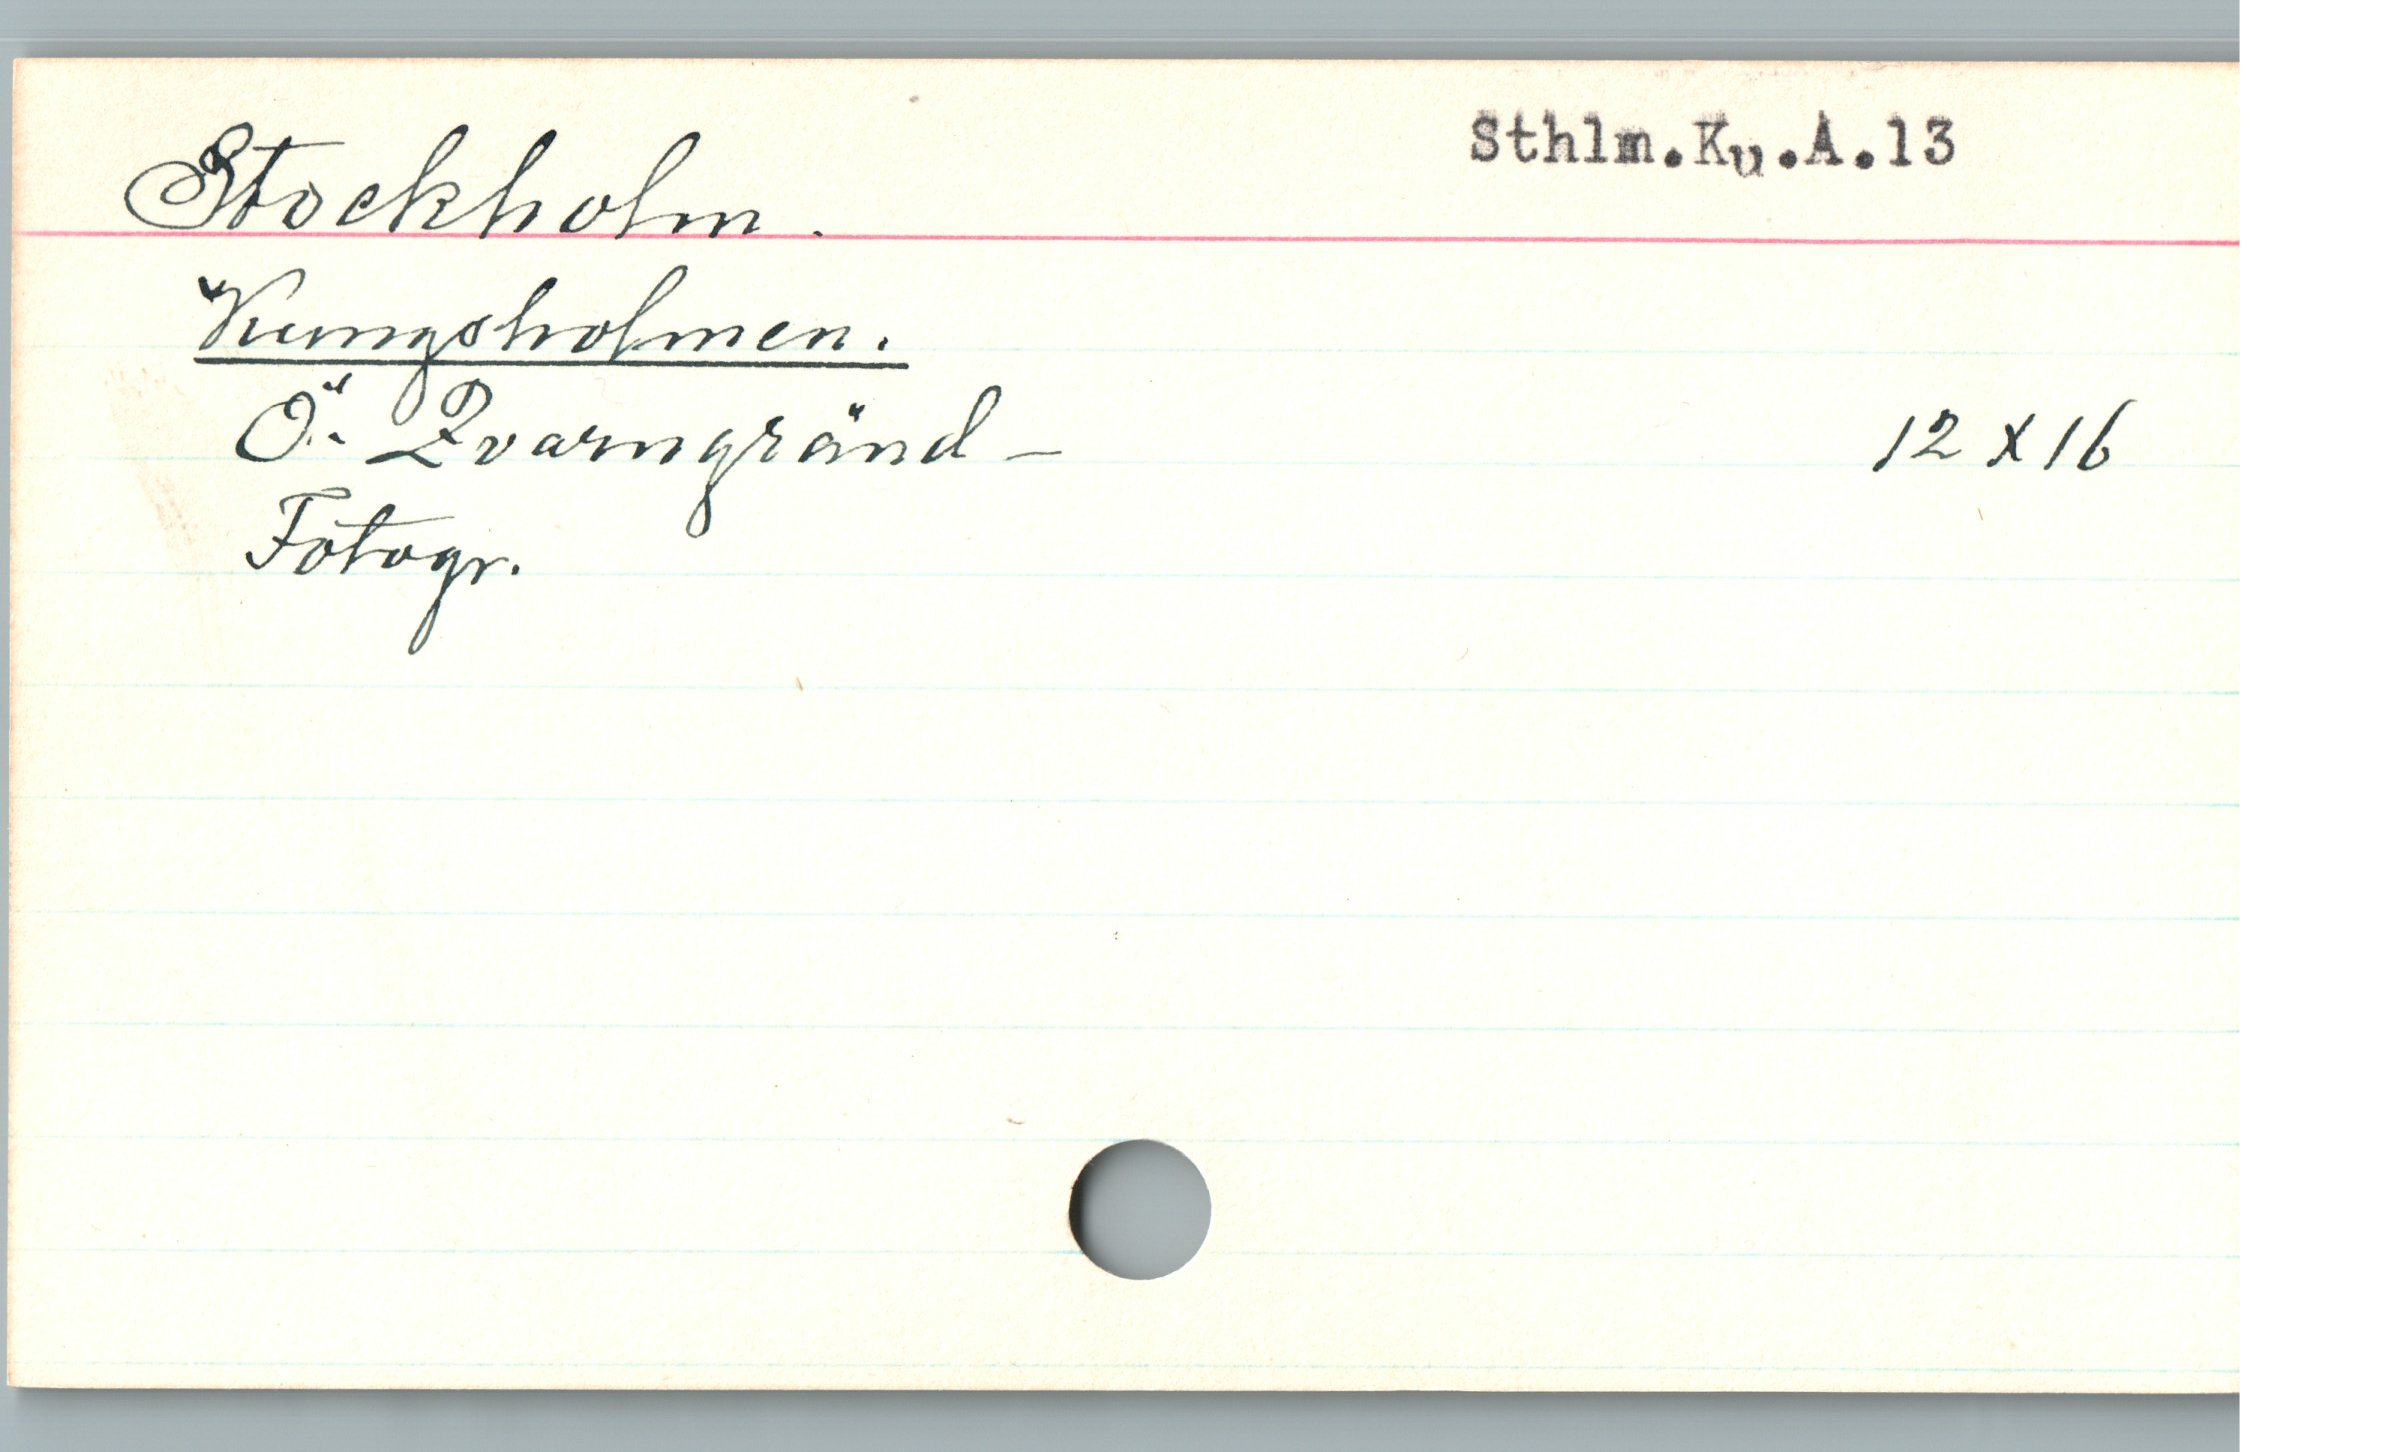 Stockholm.
Sthlm.Ku.A.13
Kungsholmen.
Ö. Qvarngränd –
12 x 16
Fotogr.